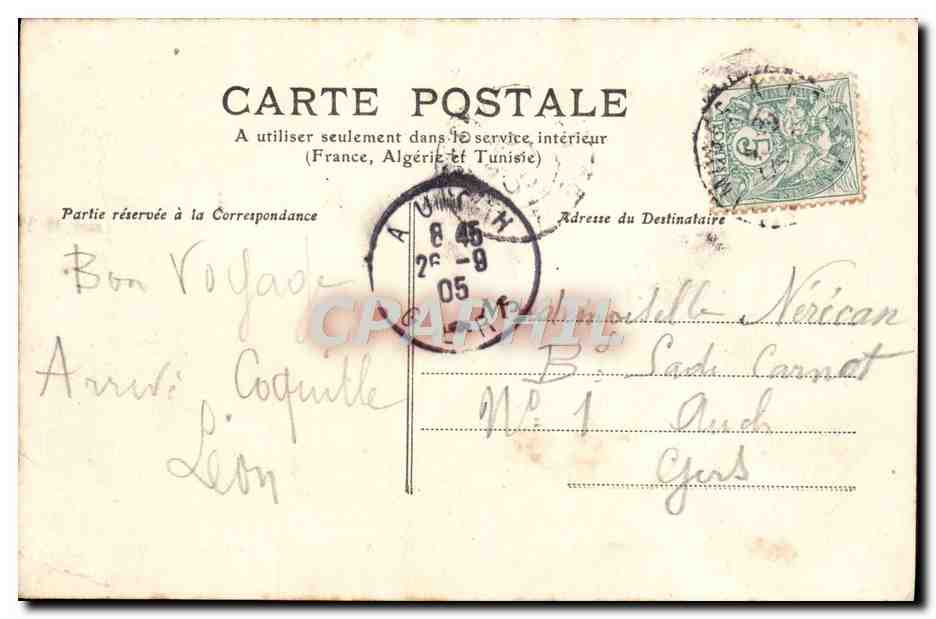 CARTE POSTALE
A utiliser seulement dans le service intérieur
(France, Algérie et Tunisie)
Partie réservée à la Correspondance
Adresse du Destinataire
AUCH
8 45
26 -9
05
GERS
5
CPAPHIL
Bon Voyade
Arrivé Coquille
Léon
Mademoiselle Nérécan
Bd Sadi Carnot
No 1 Auch
Gers